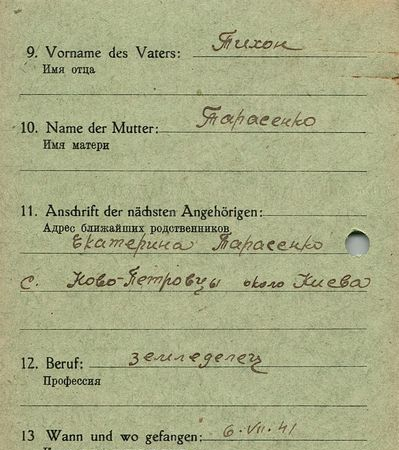 9. Vorname des Vaters: Тихон
Имя отца
10. Name der Mutter: Тарасенко
Имя матери
11. Anschrift der nächsten Angehörigen:
Адрес ближайших родственников
Екатерина Тарасенко
с. Ново-Петровцы около Киева
12. Beruf: земледелец
Профессия
13 Wann und wo gefangen: 6.VII.41